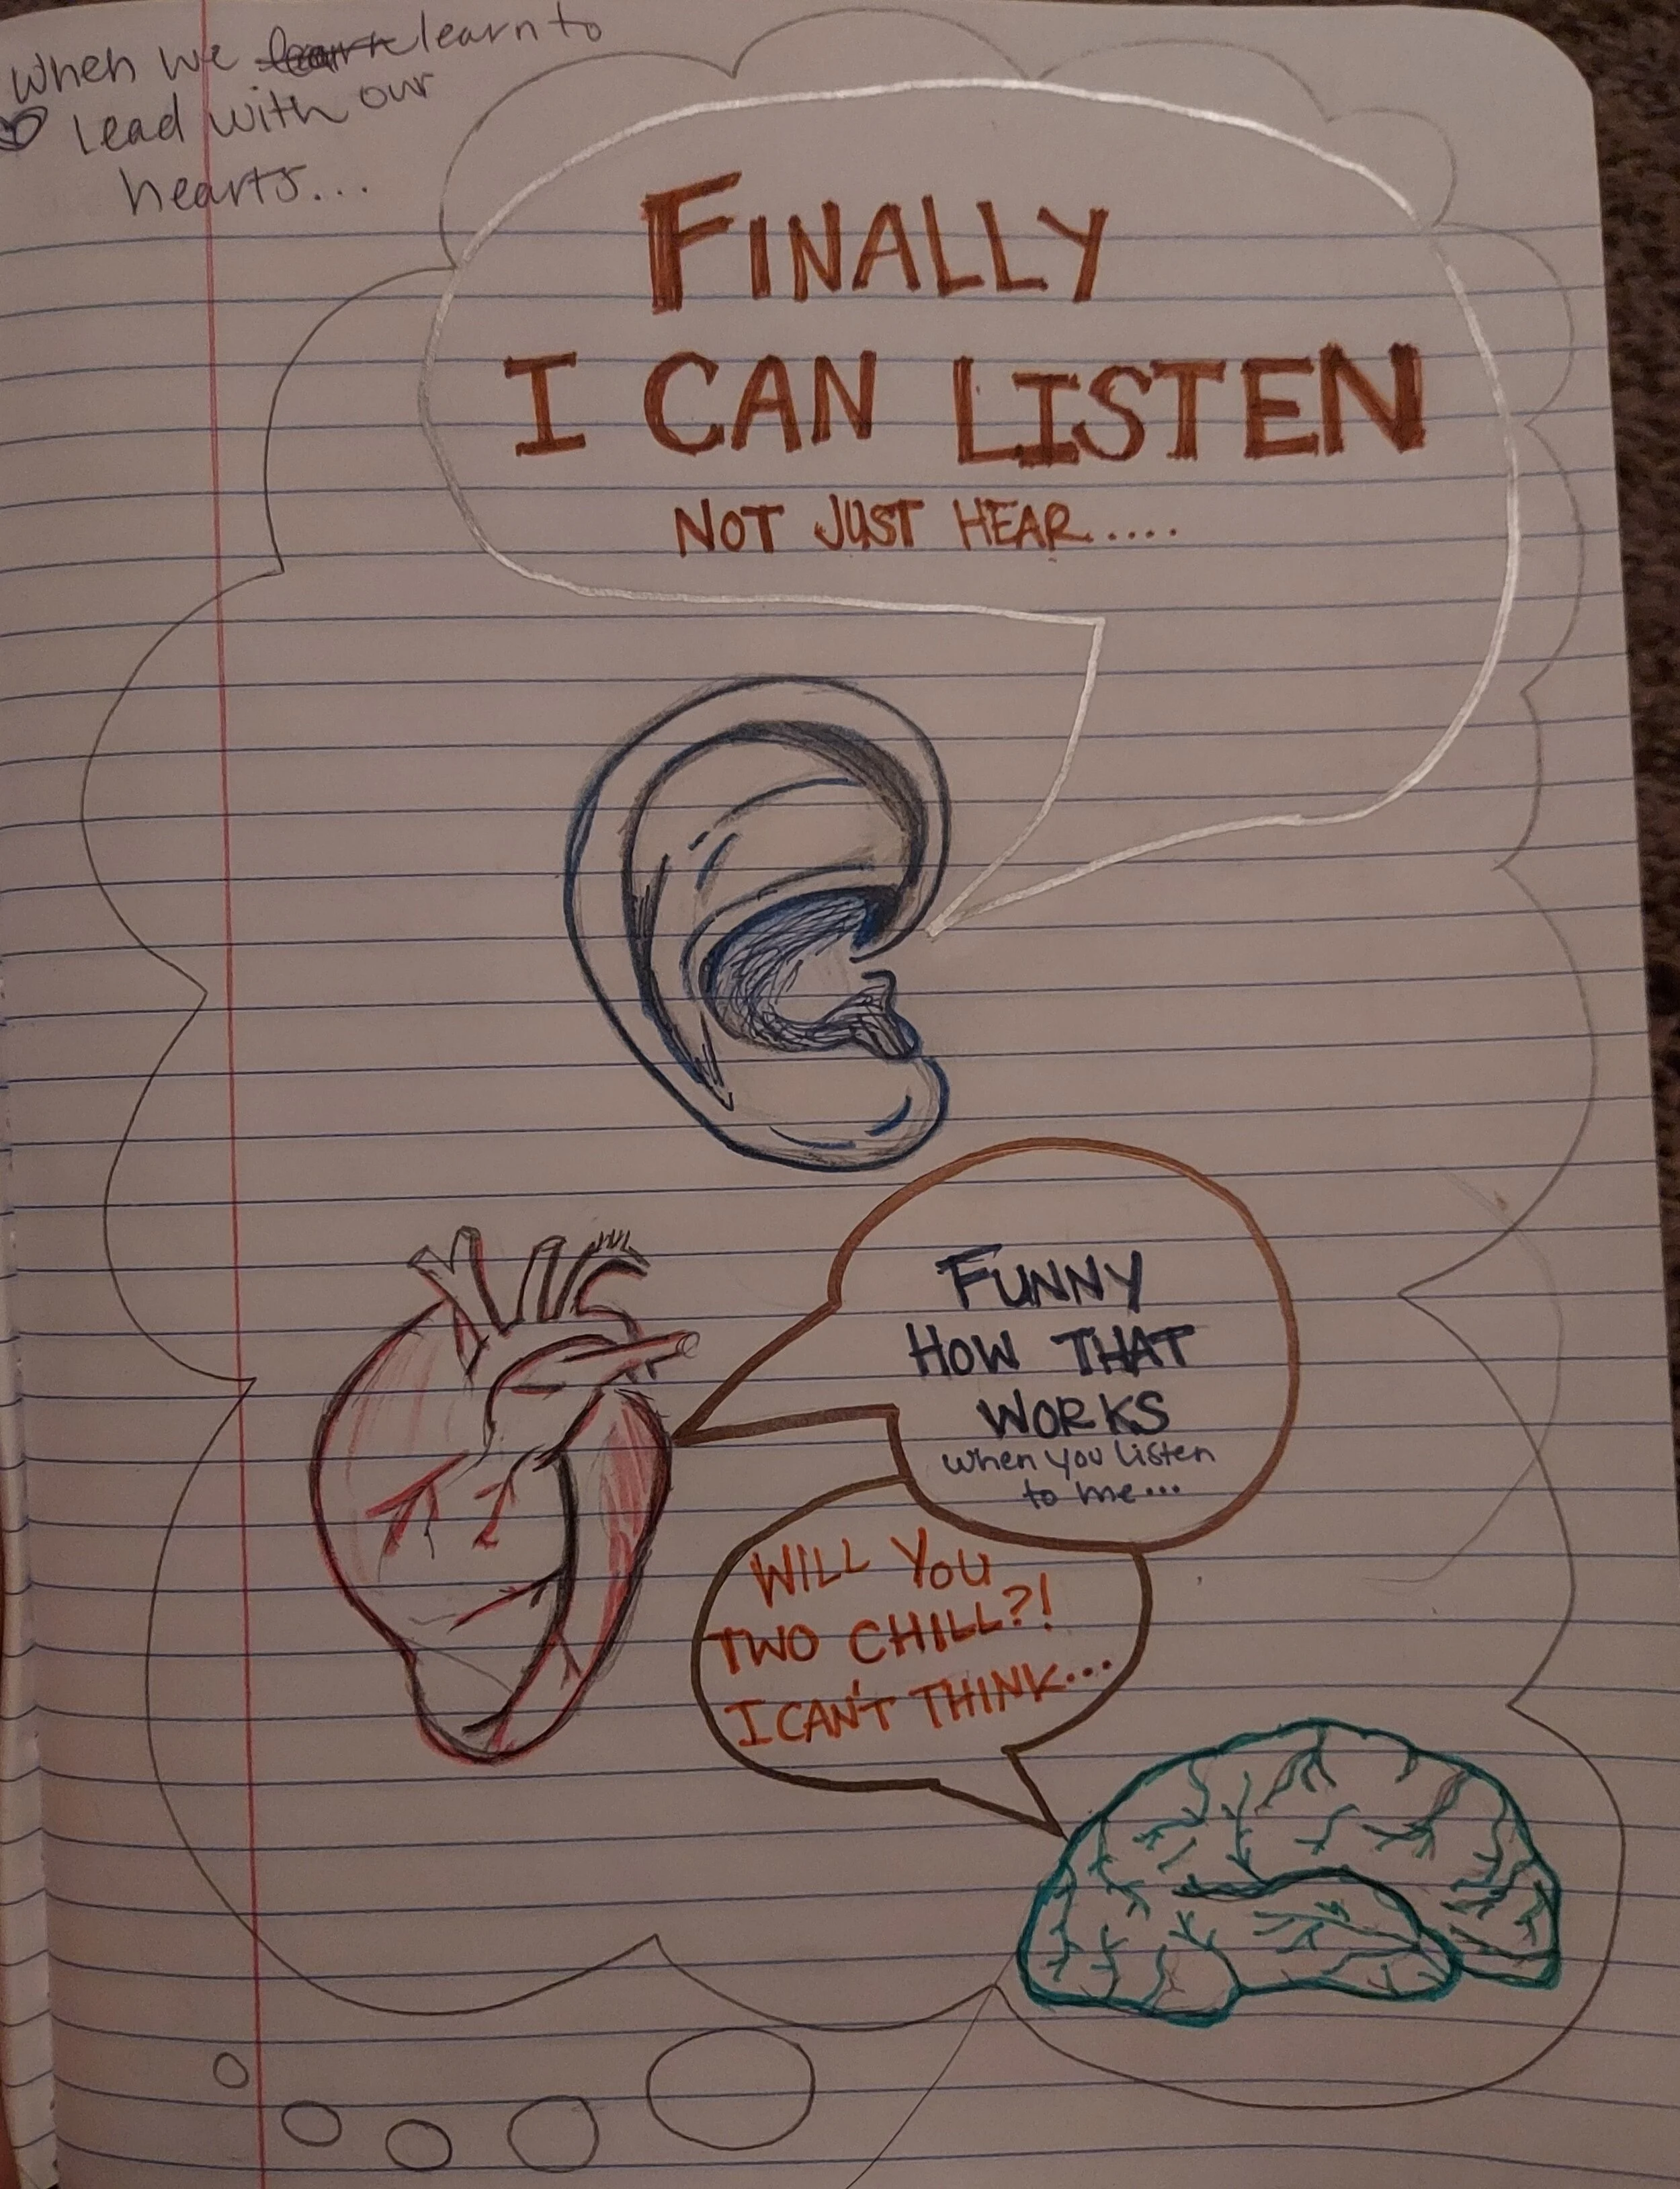 When we learn learn to
lead with our
hearts...
FINALLY
I CAN LISTEN
NOT JUST HEAR.....
FUNNY
HOW THAT
WORKS
when you listen
to me...
WILL YOU
TWO CHILL?!
I CAN'T THINK...